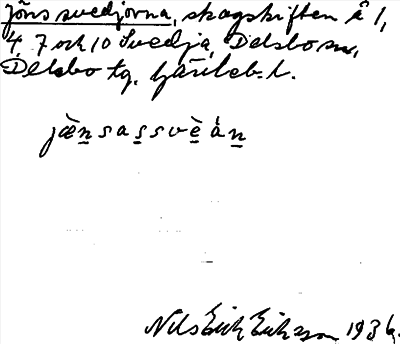 Jöns svedjorna, skogskiften å 1,
4, 7 och 10 Svedja, Delsbo sn,
Delsbo tg. Gävleb. l.
jæ̀n̲sas̲svè̲ȧn̲
Nils Erik Eriksson 1936.